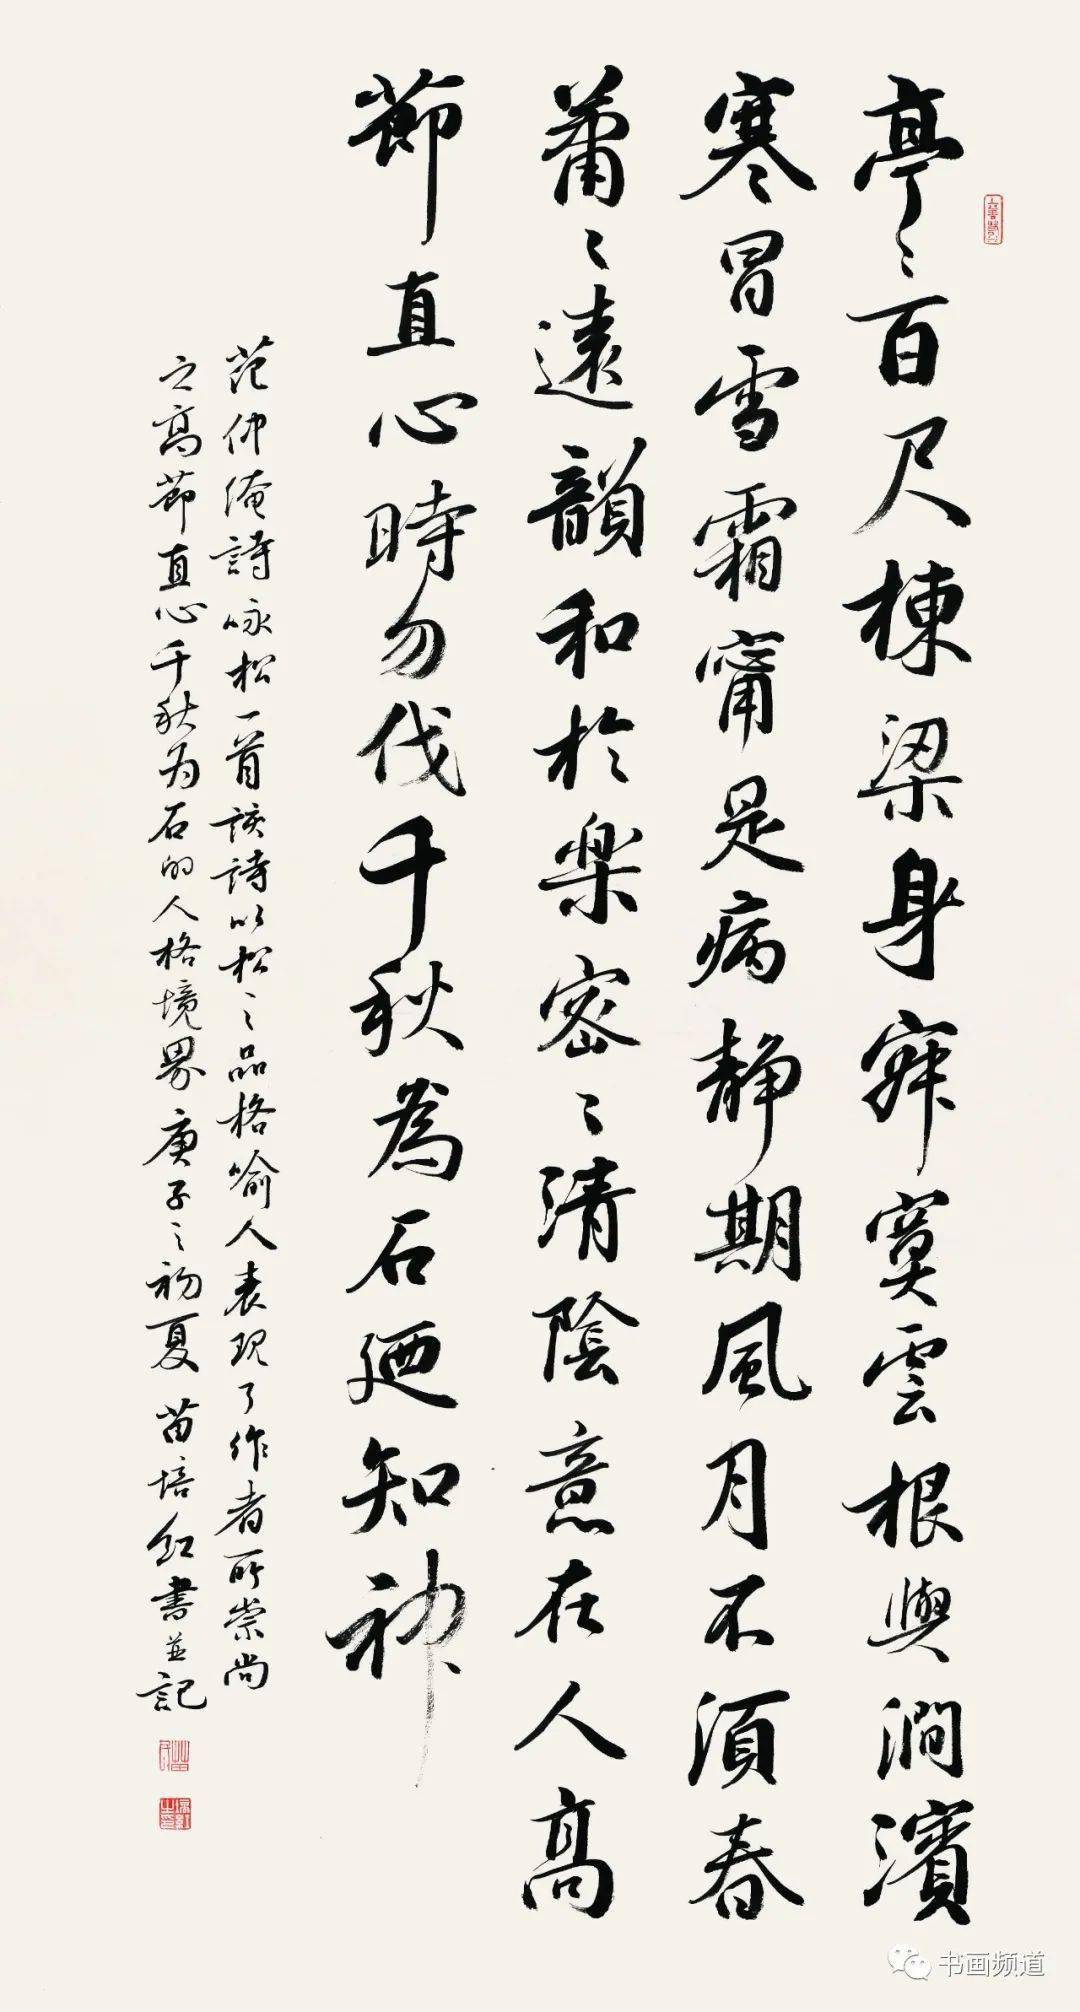 亭〻百尺棟梁身寂寞雲根與澗濱
寒冒雪霜寧是病静期風月不須春
蕭〻遠韻和於樂密〻清陰意在人高
節直心時勿伐千秋為石迺知神
范仲淹詩咏松一首該詩以松之品格喻人表現了作者所崇尚
之高節直心千秋為石的人格境界庚子之初夏苗培紅書並記
书画频道